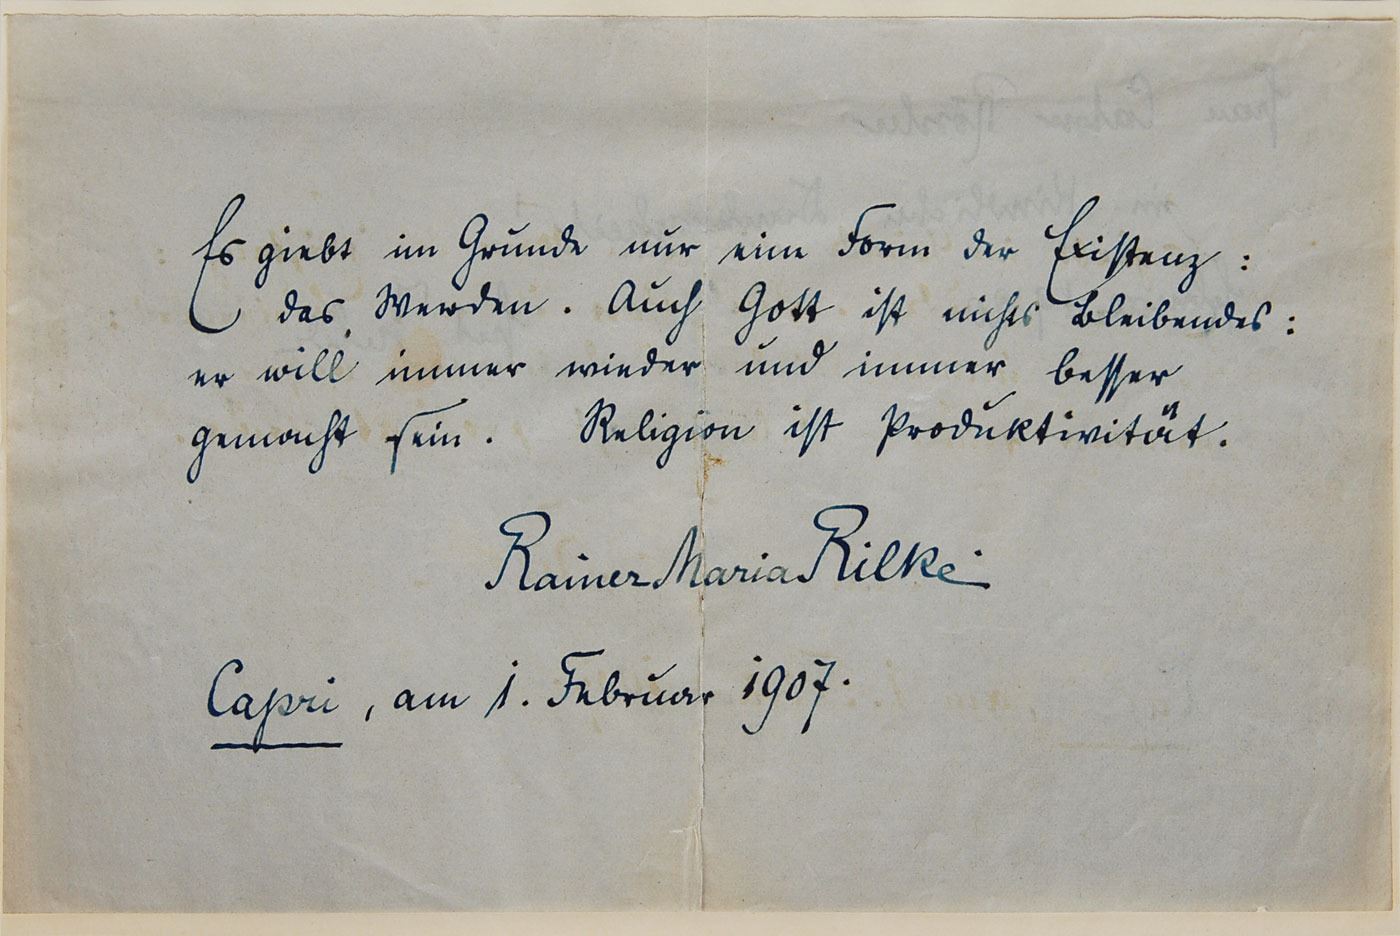 Es giebt im Grunde nur eine Form der Existenz :
das Werden. Auch Gott ist nichts Bleibendes :
er will immer wieder und immer besser
gemacht sein. Religion ist Produktivität.
Rainer Maria Rilke
Capri, am 1. Februar 1907.